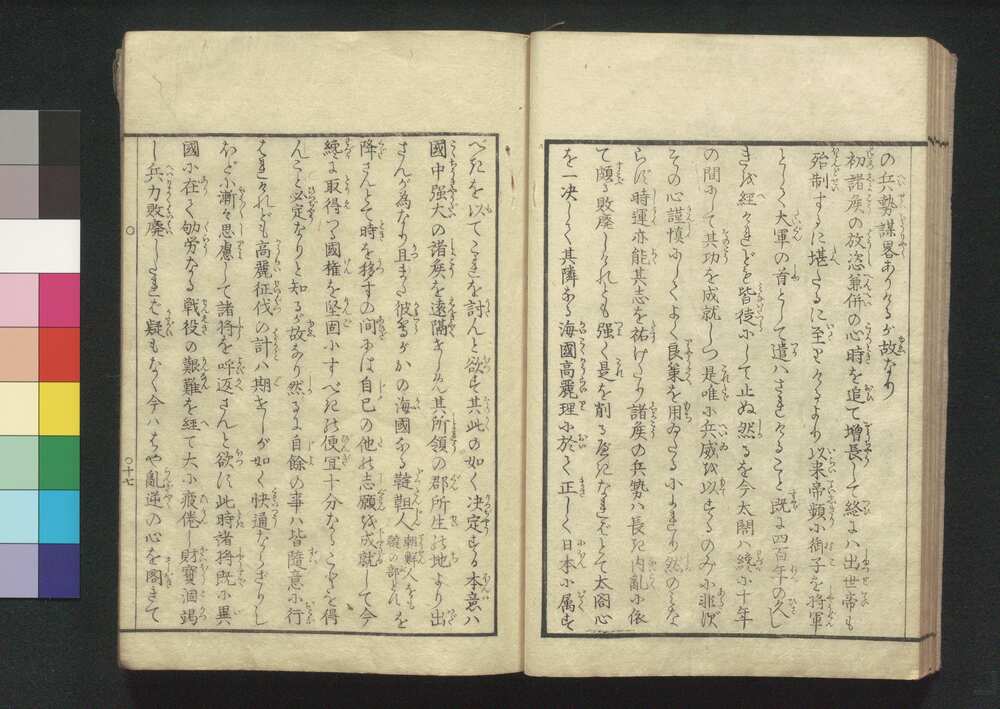 の兵勢謀畧ありけるが故なり
初諸矦の放恣兼併の心時を追て増長して終には出世帝も
殆制するに堪ざるに至りけるより以来帝頻に御子を将軍
として大軍の首として遣はされけること既に四百年の久し
きを経けれども皆徒にして止ぬ然るを今太閤は纔に十年
の間にして其功を成就しつ是唯に兵威を以するのみに非ず
その心謹慎にしてよく良策を用ゐたるによれり然のみな
らず時運亦能其志を祐けたり諸矦の兵勢は長き内亂に依
て頗る敗廢しけれども強く是を削るべきなどとて太閤心
を一决して其隣なる海國高麗理に於て正しく日本に属す
べきを以てこれを討んと欲す其此の如く决定する本意は
國中強大の諸矦を遠隔せしめん其所領の郡所生の地より出
さんが為なり且また彼等がかの海國なる韃靼人朝鮮人をも韃の部とすを
降さんとて時を移すの間には自己の他の志願を成就して今
纔に取得つる國權を堅固にすべきの便宜十分なることを得
んこと必定なりと知るが故なり然るに自餘の事は皆隨意に行
はれけれども高麗征伐の計は期せしが如く快通ならざりし
ほどに漸々思慮して諸将を呼返さんと欲す此時諸将既に異
國に在て劬労なる戦役の艱難を経て大に疲倦し財寳涸竭
し兵力敗廢したれば疑もなく今ははや亂逆の心を閣きて
〇十七